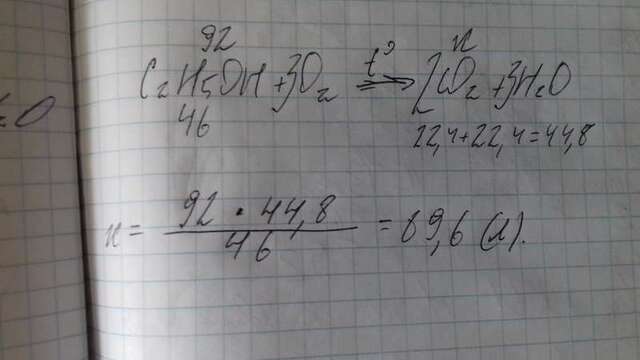 92 x
C₂H₅OH + 3O₂ t° ⇒ 2CO₂ + 3H₂O
46 22,4+22,4=44,8
x = 92 · 44,8 / 46 = 89,6 (л).